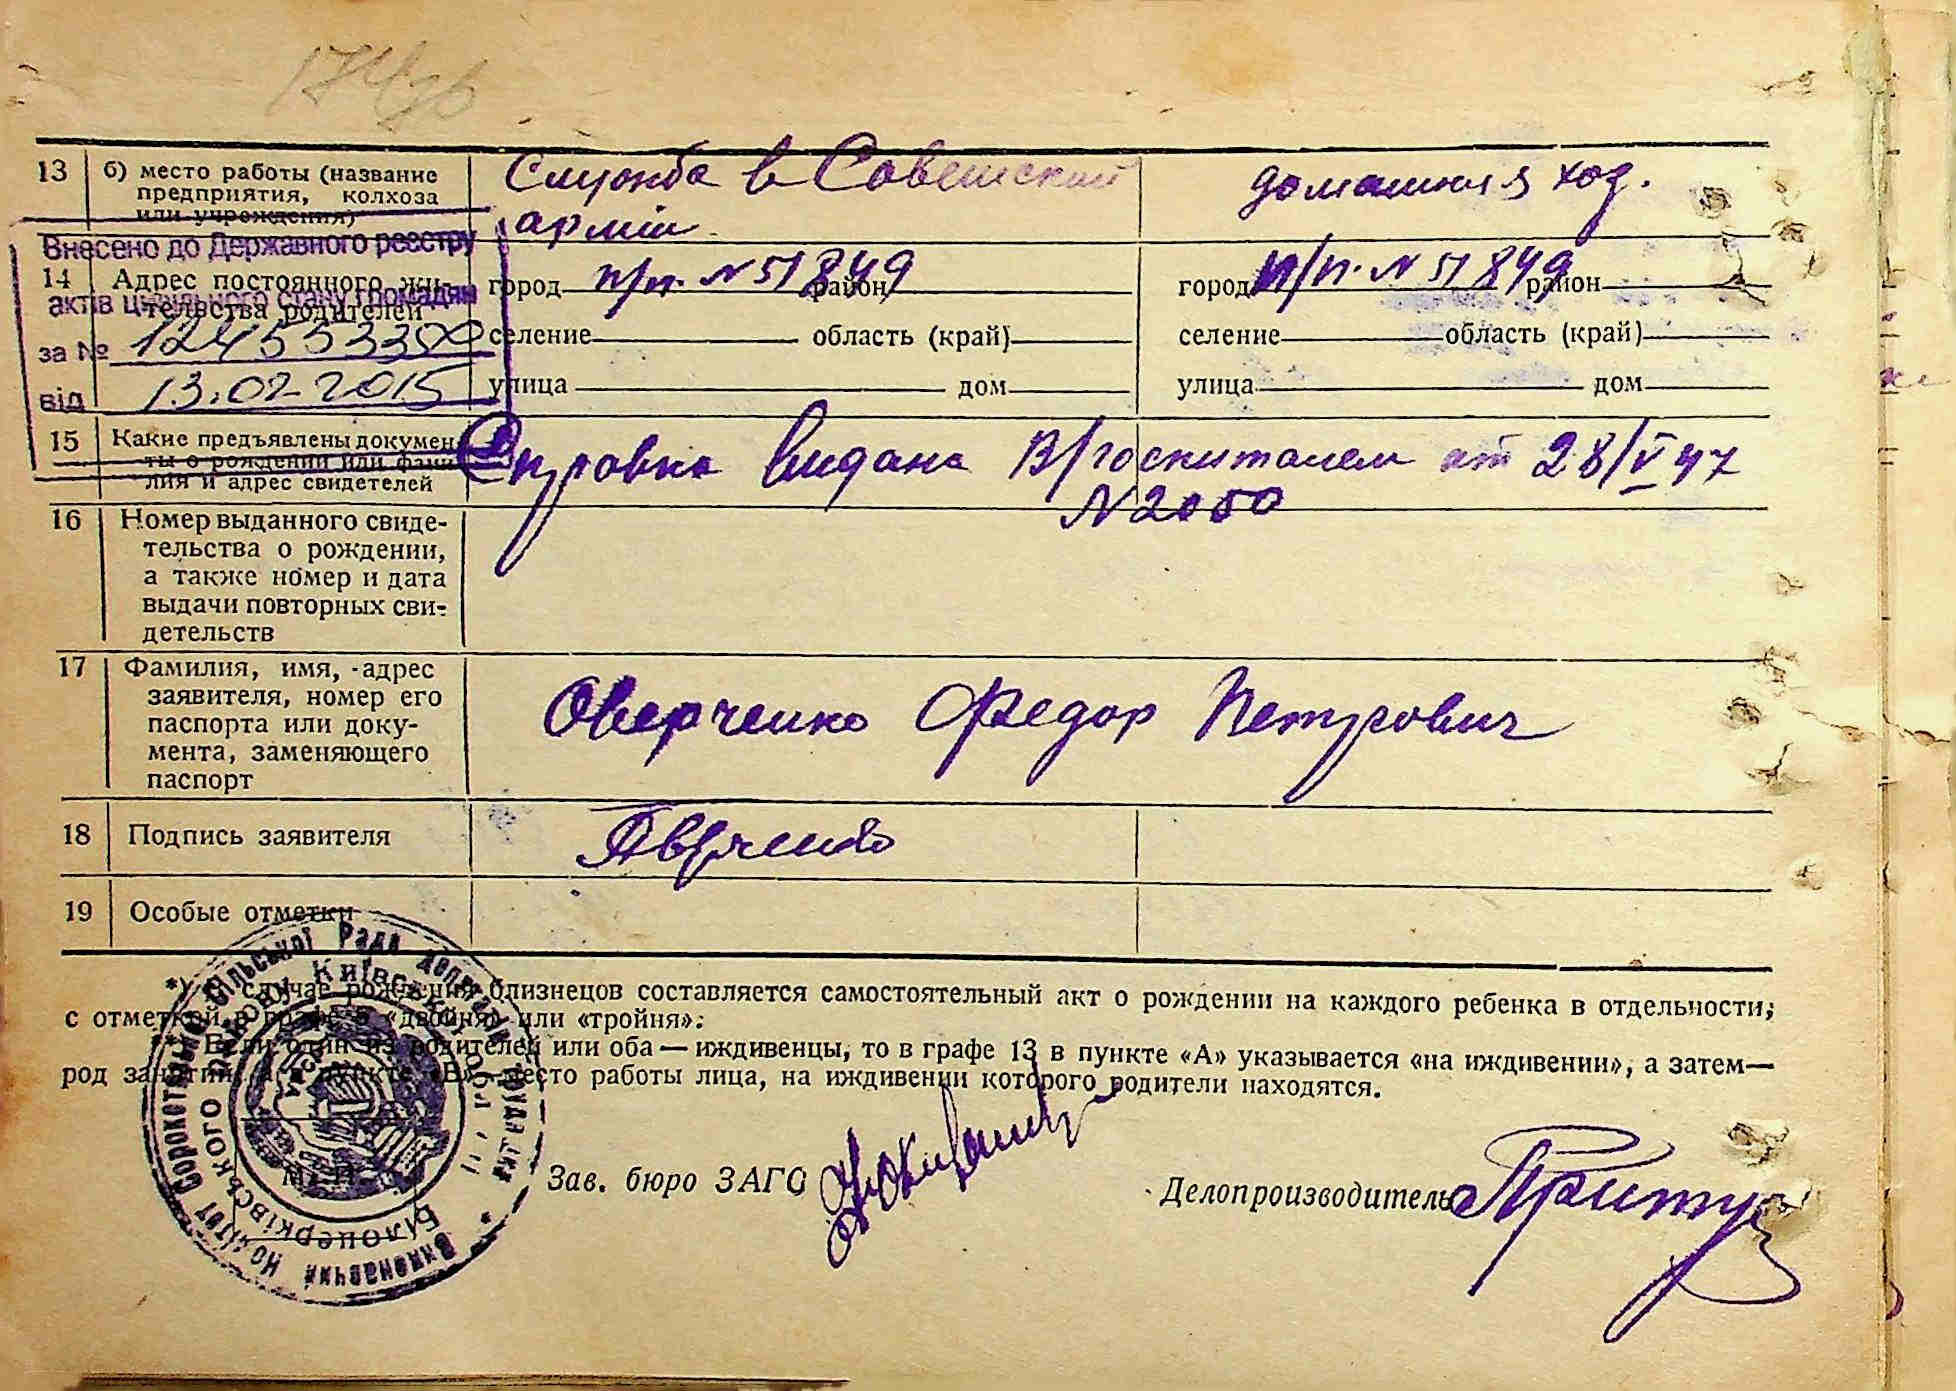 13 б) место работы (название
предприятия, колхоза
или учреждения)
Служба в Советской
армии
домашняя хоз.
Внесено до Державного реєстру
актів цивільного стану громадян
за № 12455333
від 13.02.2015
14 Адрес постоянного жи-
тельства родителей
город п/п. N 51849 район
селение область (край)
улица дом
город п/п. N 51849 район
селение область (край)
улица дом
15 Какие предъявлены докумен-
ты о рождении или фами-
лия и адрес свидетелей
Справка видана В/госпиталем от 28/V 47
N 2050
16 Номер выданного свиде-
тельства о рождении,
а также номер и дата
выдачи повторных сви-
детельств
17 Фамилия, имя, адрес
заявителя, номер его
паспорта или доку-
мента, заменяющего
паспорт
Оверченко Федор Петрович
18 Подпись заявителя
19 Особые отметки
*) В случае рождения близнецов составляется самостоятельный акт о рождении на каждого ребенка в отдельности,
с отметкой в графе 5 «двойня» или «тройня».
Если один из родителей или оба — иждивенцы, то в графе 13 в пункте «А» указывается «на иждивении», а затем—
род занятий, а в пункте «Б»—место работы лица, на иждивении которого родители находятся.
Зав. бюро ЗАГС
Делопроизводитель
Виконавчий Комітет
сільської Ради депутатів трудящих
Білоцерківського району Київської обл.